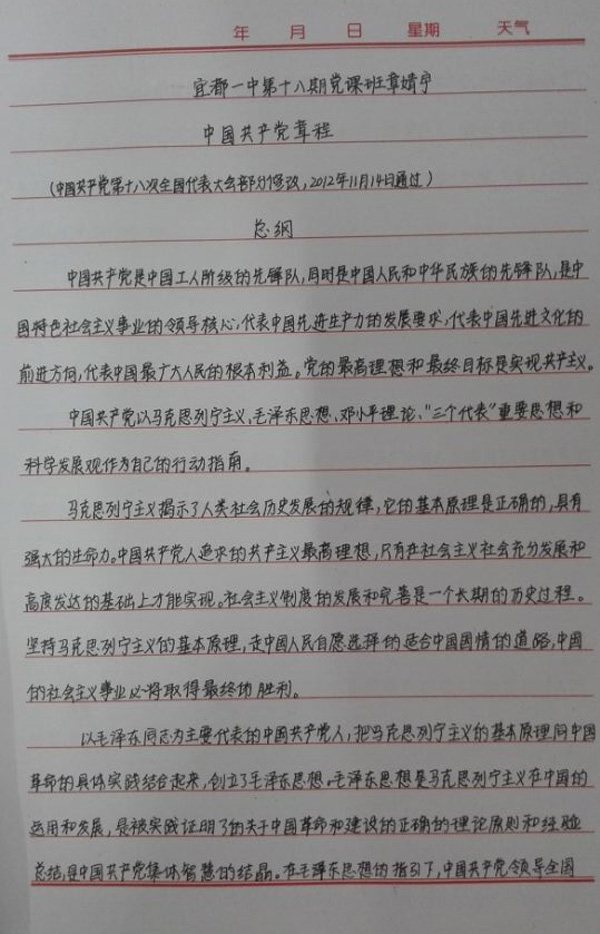 年 月 日 星期 天气
宜都一中第十八期党课班章婧宁
中国共产党章程
(中国共产党第十八次全国代表大会部分修改,2012年11月14日通过)
总纲
中国共产党是中国工人阶级的先锋队,同时是中国人民和中华民族的先锋队,是中
国特色社会主义事业的领导核心,代表中国先进生产力的发展要求,代表中国先进文化的
前进方向,代表中国最广大人民的根本利益。党的最高理想和最终目标是实现共产主义。
中国共产党以马克思列宁主义、毛泽东思想、邓小平理论、"三个代表"重要思想和
科学发展观作为自己的行动指南。
马克思列宁主义揭示了人类社会历史发展的规律,它的基本原理是正确的,具有
强大的生命力。中国共产党人追求的共产主义最高理想,只有在社会主义社会充分发展和
高度发达的基础上才能实现。社会主义制度的发展和完善是一个长期的历史过程。
坚持马克思列宁主义的基本原理,走中国人民自愿选择的适合中国国情的道路,中国
的社会主义事业必将取得最终的胜利。
以毛泽东同志为主要代表的中国共产党人,把马克思列宁主义的基本原理同中国
革命的具体实践结合起来,创立了毛泽东思想。毛泽东思想是马克思列宁主义在中国的
运用和发展,是被实践证明了的关于中国革命和建设的正确的理论原则和经验
总结,是中国共产党集体智慧的结晶。在毛泽东思想的指引下,中国共产党领导全国